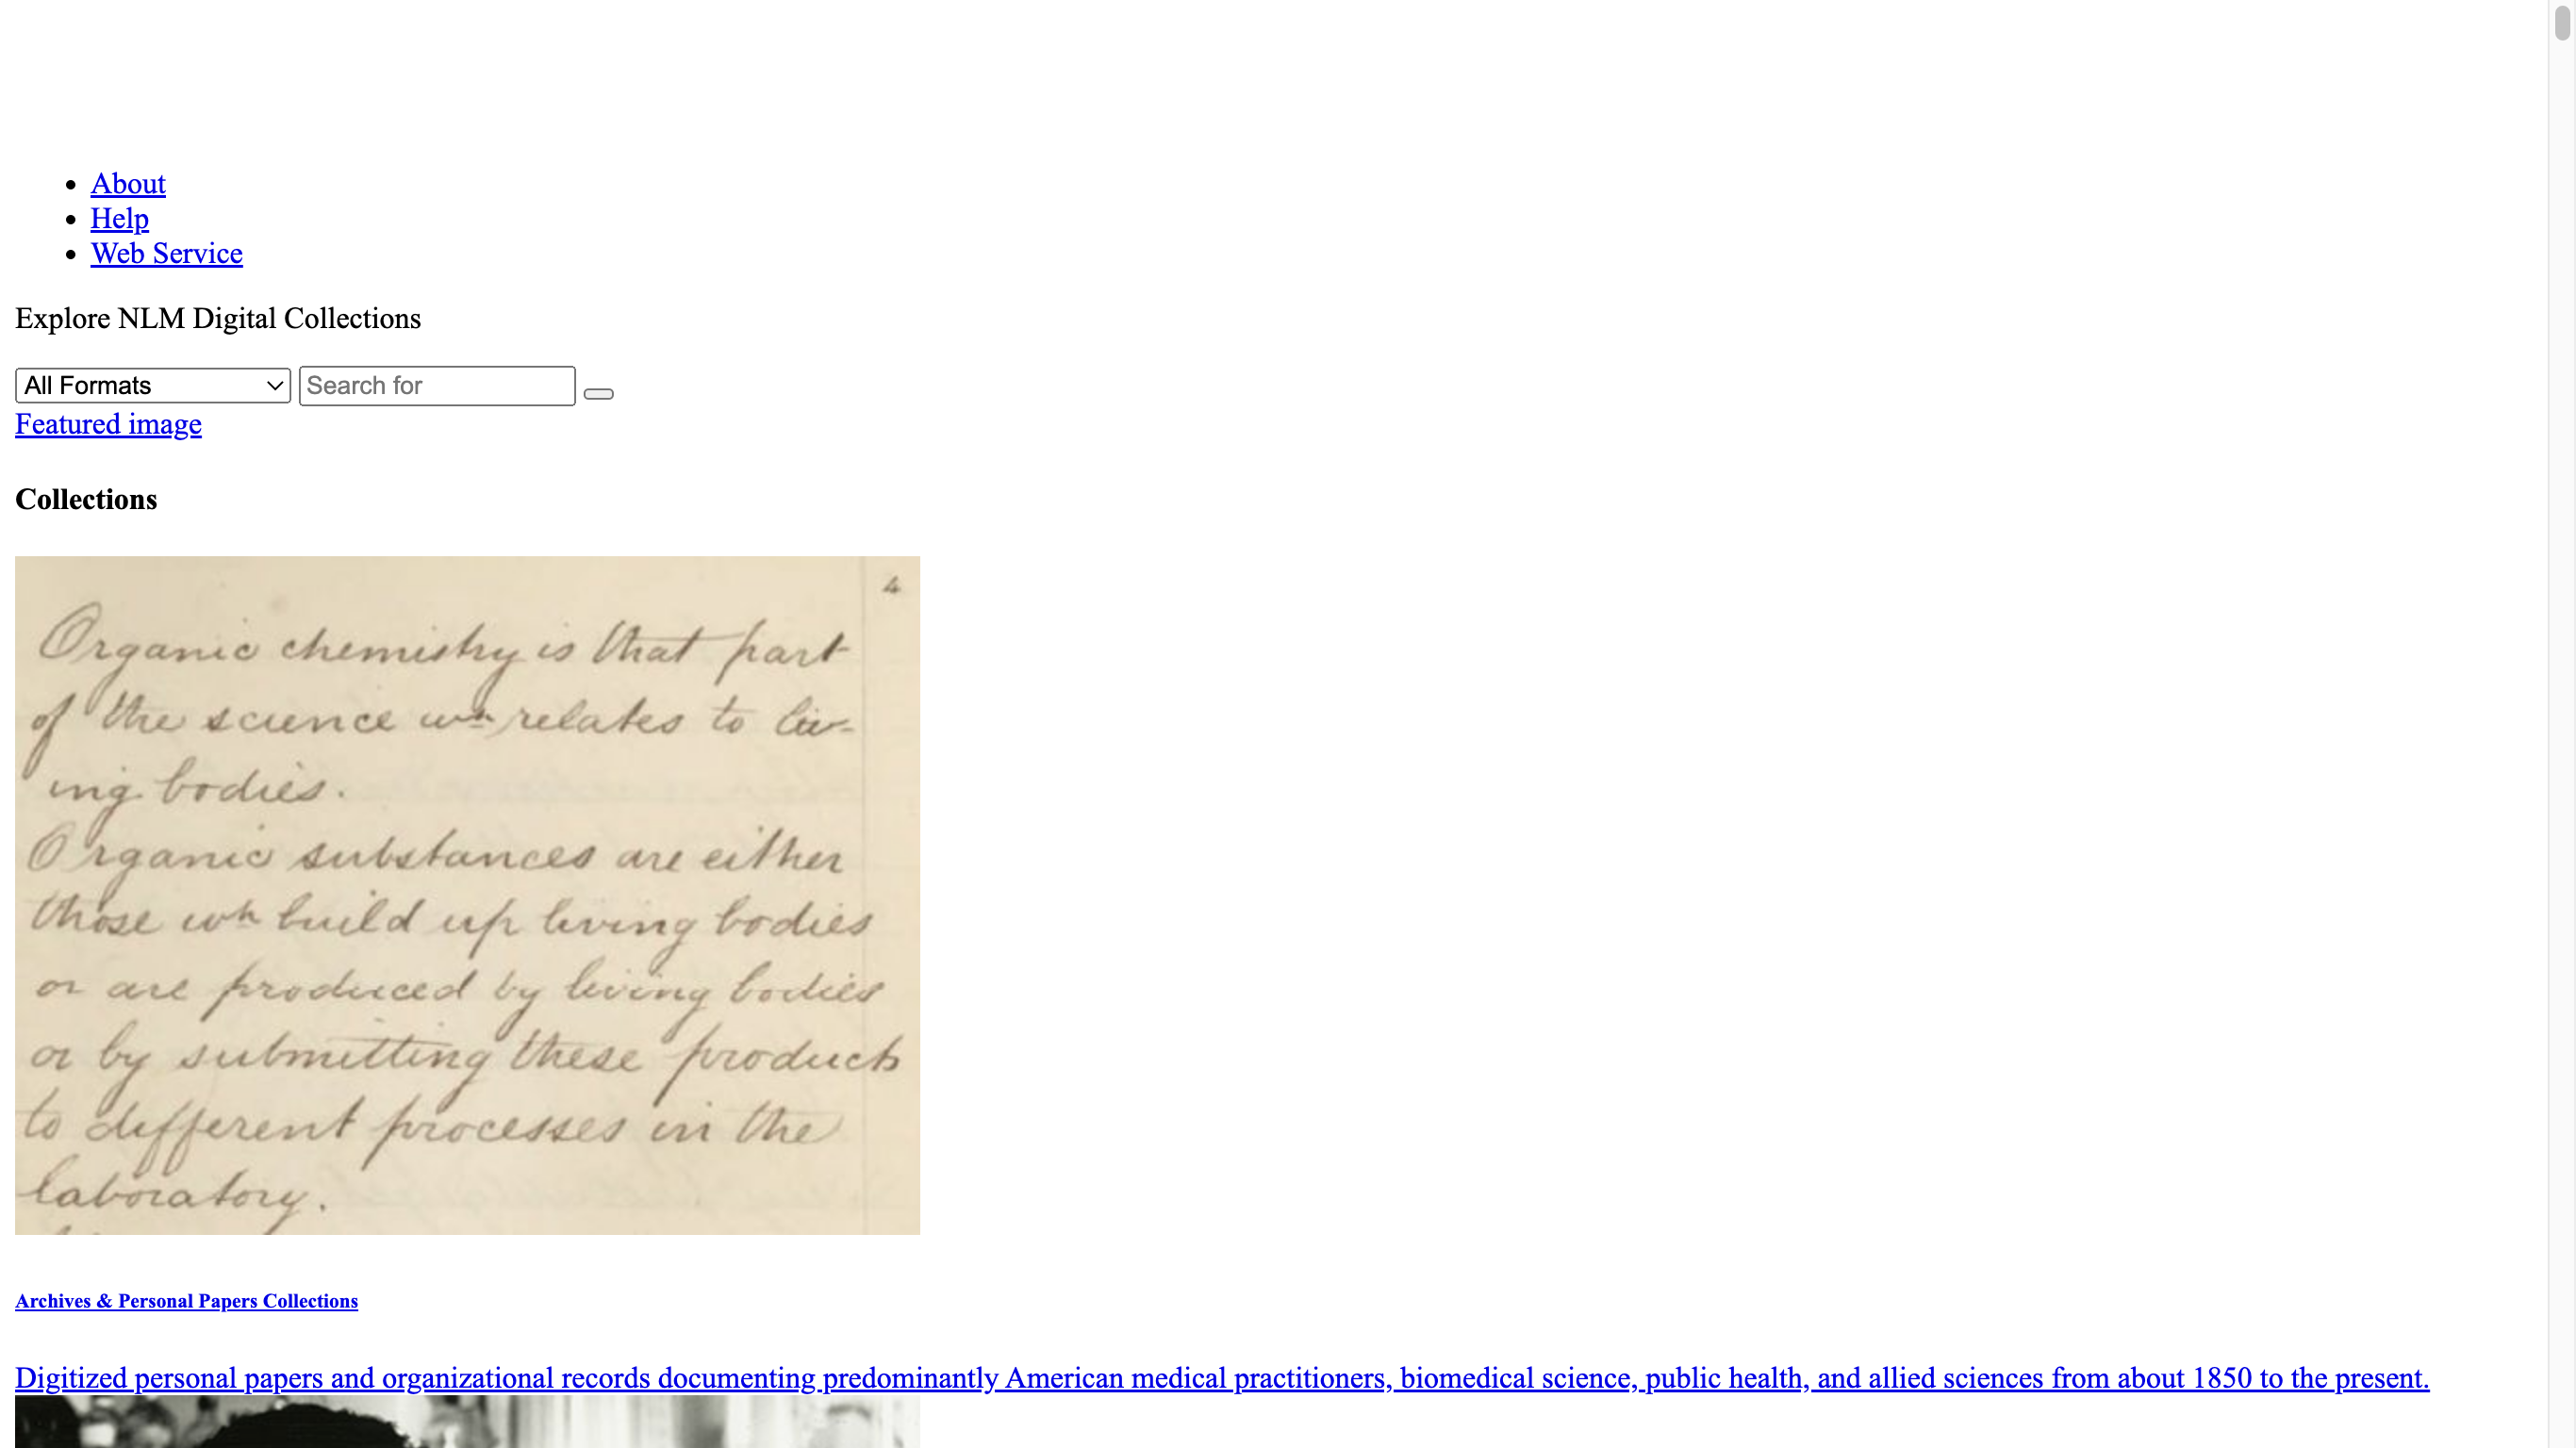 About
Help
Web Service
Explore NLM Digital Collections
All Formats Search for
Featured image
Collections
4
Organic chemistry is that part
of the science wh relates to liv-
ing bodies.
Organic substances are either
those wh build up living bodies
or are produced by living bodies
or by submitting these products
to different processes in the
laboratory.
Archives & Personal Papers Collections
Digitized personal papers and organizational records documenting predominantly American medical practitioners, biomedical science, public health, and allied sciences from about 1850 to the present.